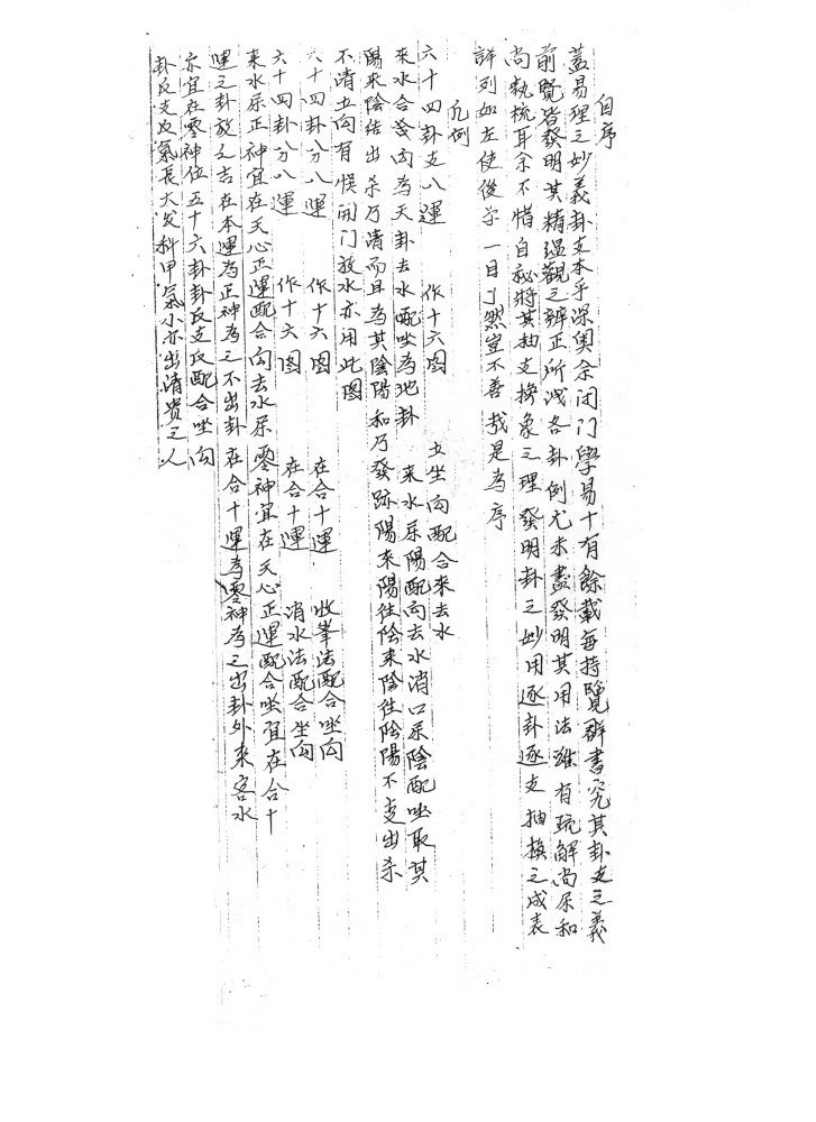 自序
蓋易理之妙義卦爻本乎深奧余闭门學易十有餘載每持覽群書究其卦爻之義
前覽皆發明其精蕴觀之辨正所載各卦例尤未盡發明其用法雖有疏解尚屬和
尚執梳耳余不惜自秘將其抽爻換象之理發明卦之妙用逐卦逐爻抽換之成表
詳列如左使後学一目了然豈不善哉是為序
凡例
六十四卦爻八運 作十六图 立坐向配合來去水
來水合癸向為天卦去水配坐為地卦 来水屬陽配向去水消口屬陰配坐取其
陽來陰結出杀乃清而且為其陰陽和乃發跡陽來陽往陰來陰往陰陽不交出杀
不清立向有悞開门放水亦用此图
六十四卦分八運 作十六图 在合十運 收峯法配合坐向
六十四卦分八運 作十六图 在合十運 消水法配合坐向
来水屬正神宜在天心正運配合向去水屬零神宜在天心正運配合坐宜在合十
運之卦放之吉在本運為正神為之不出卦在合十運為零神為之出卦外来客水
亦宜在零神位五十六卦卦反爻反配合坐向
卦反爻反氣長大发科甲氣小亦出清贵之人